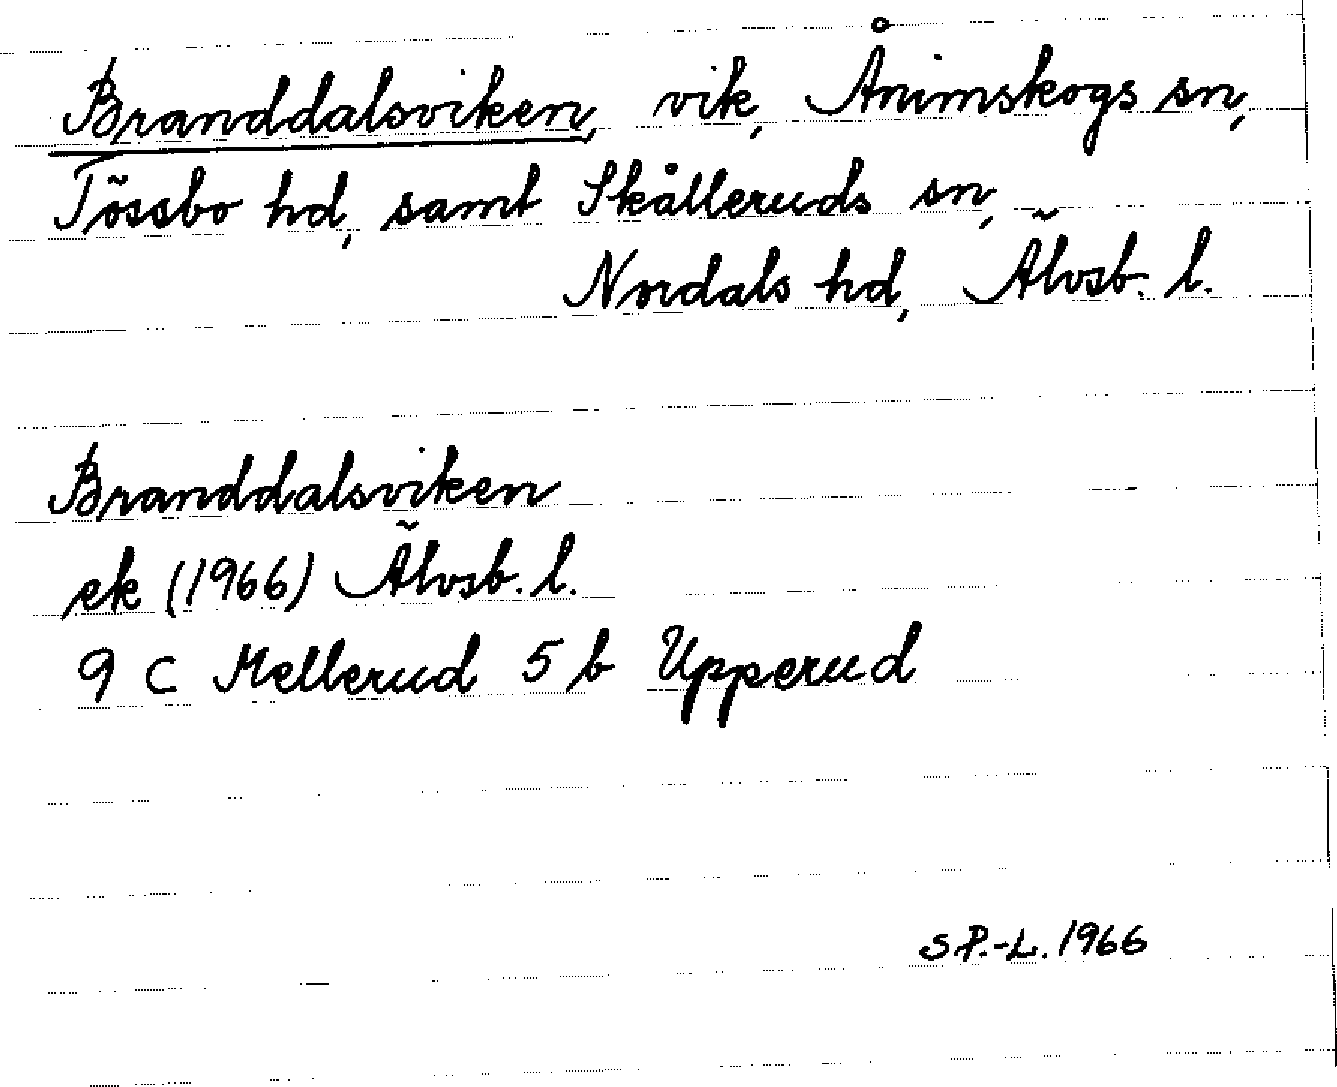 Branddalsviken, vik, Ånimskogs sn,
Tössbo hd, samt Skålleruds sn,
Nordals hd, Älvsb. l.
Branddalsviken
ek (1966) Älvsb. l.
9 C Mellerud 5 b Upperud
S P.-L. 1966